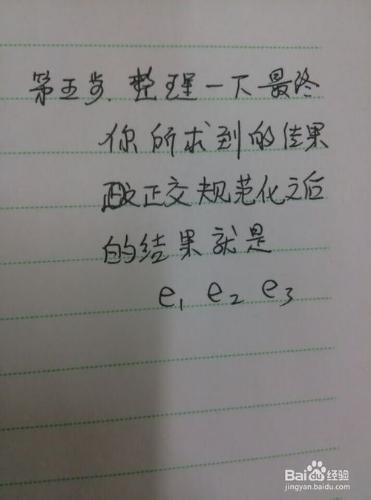 第五步.整理一下最终
你所求到的结果
正交规范化之后
的结果就是
e₁ e₂ e₃
Baidu经验
jingyan.baidu.com